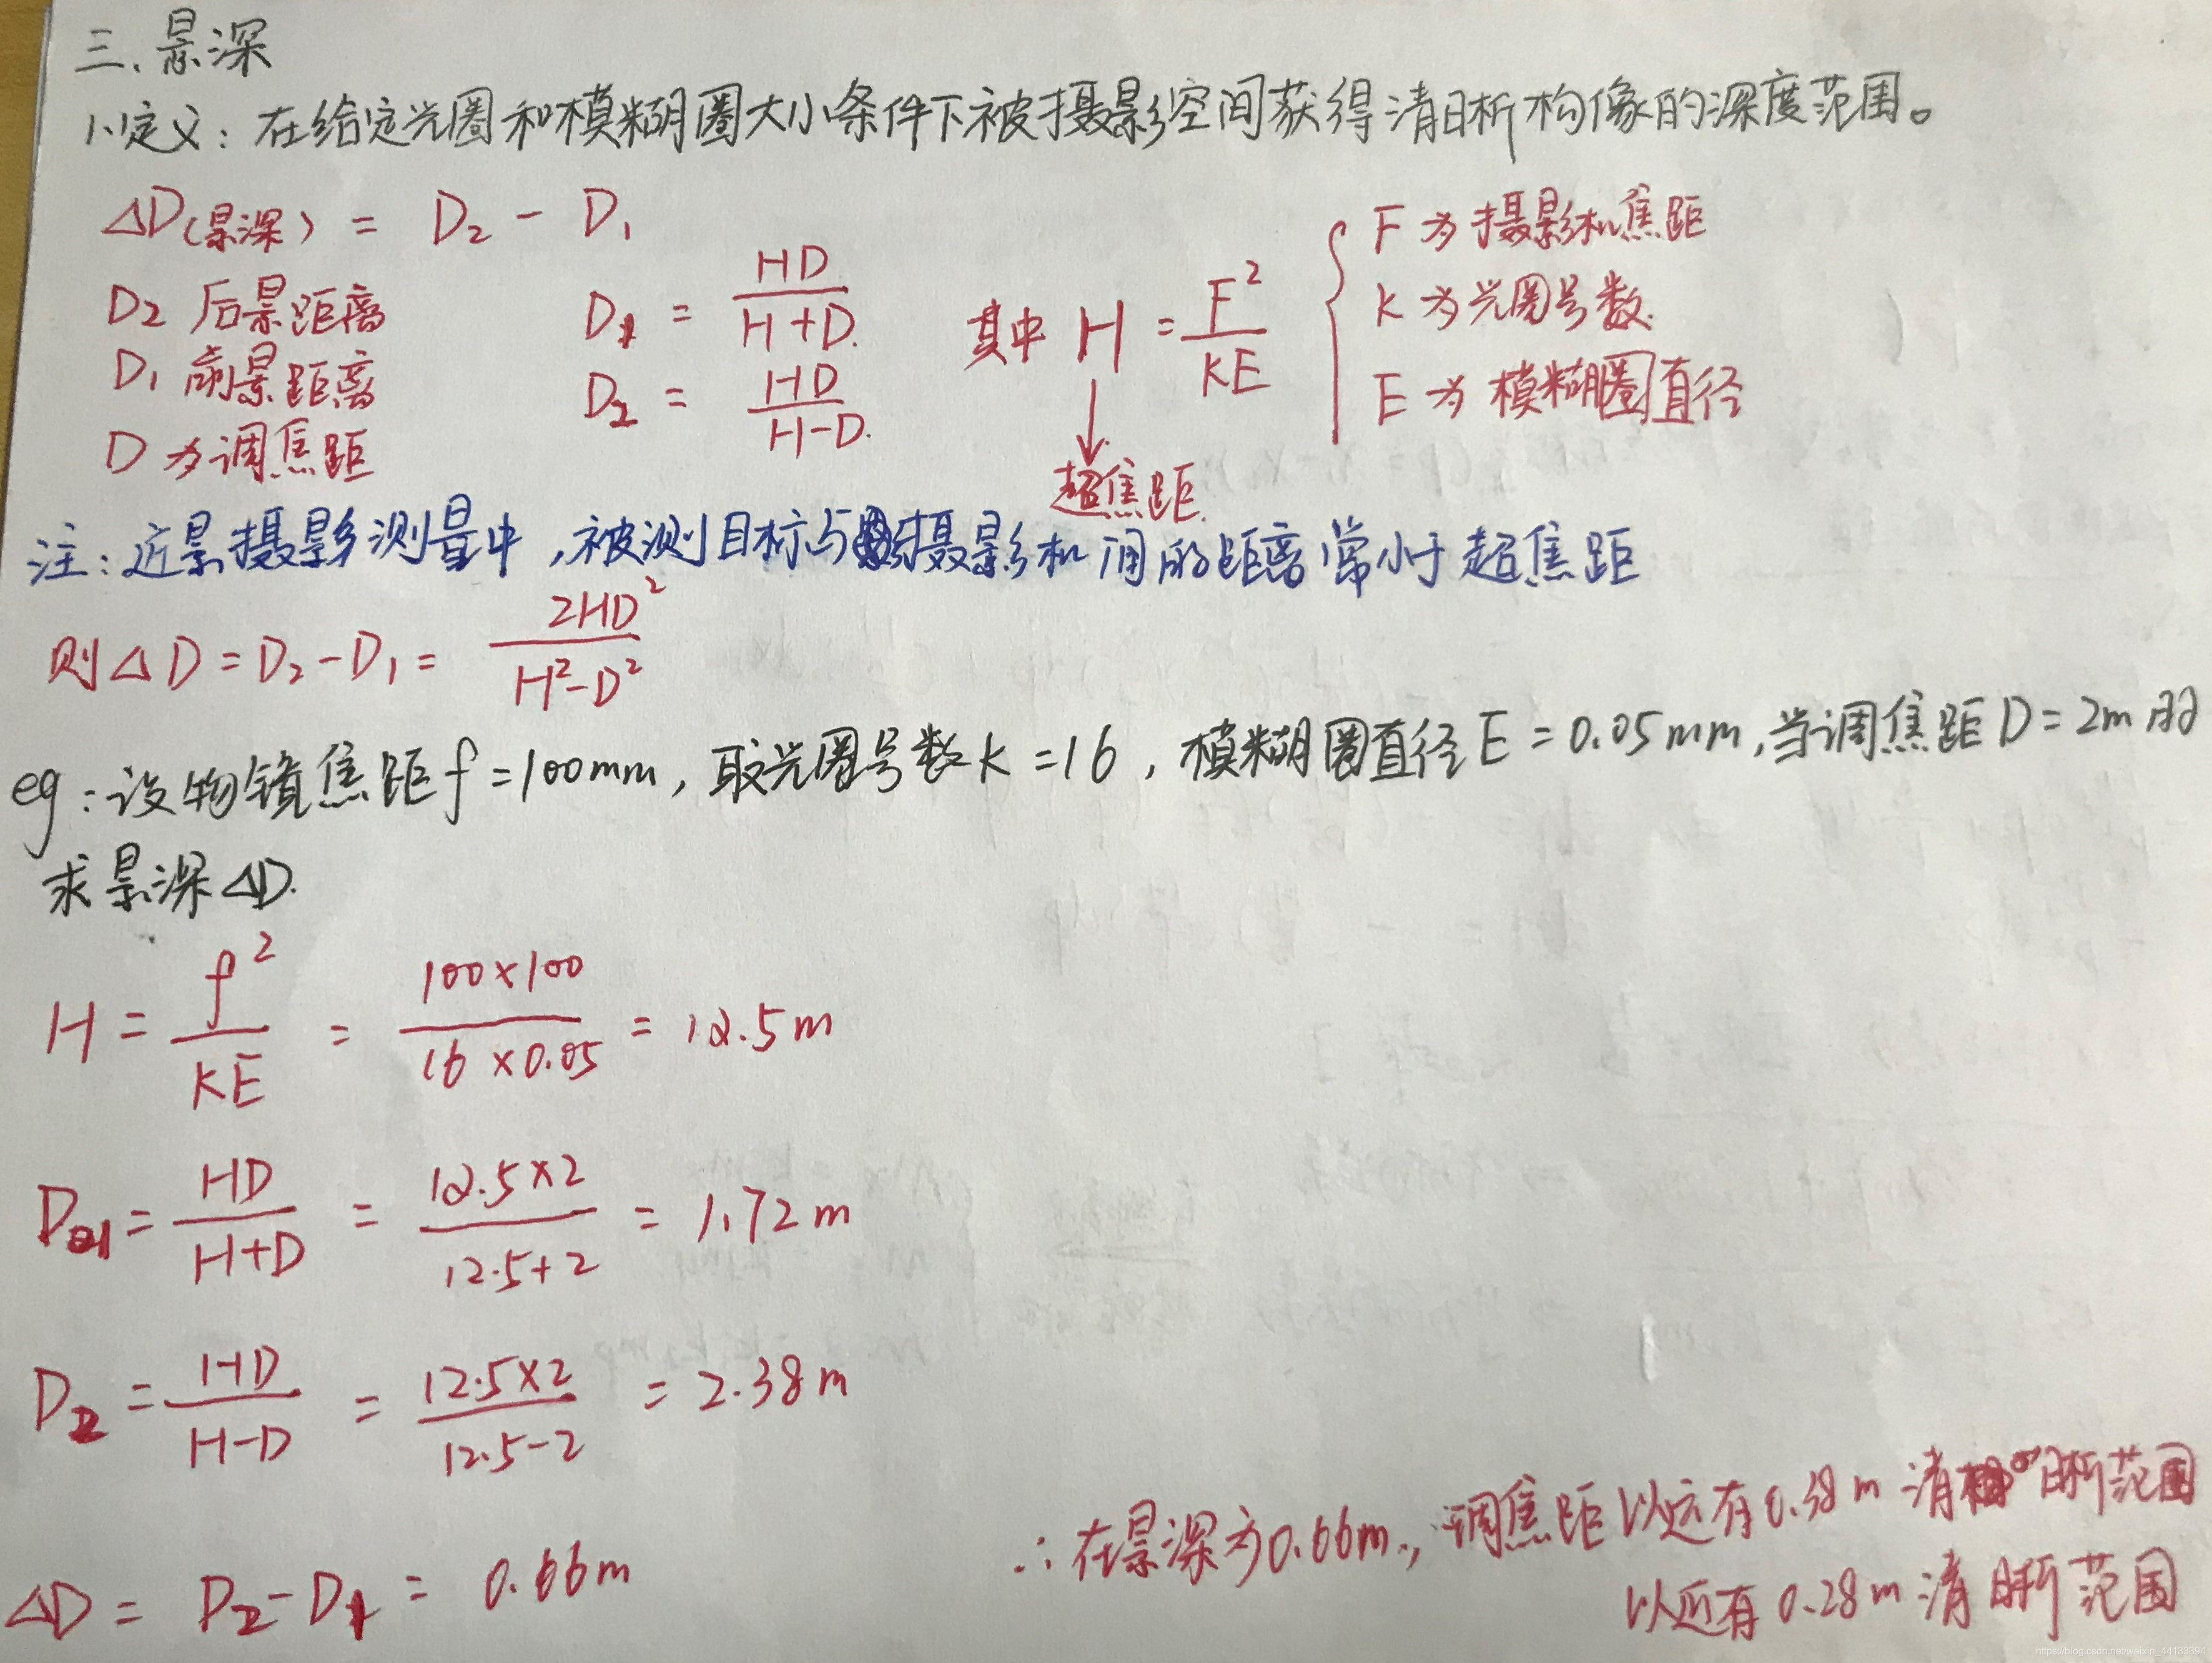 三、景深
1、定义：在给定光圈和模糊圈大小条件下被摄影空间获得清晰构像的深度范围。
ΔD(景深) = D₂ - D₁
D2 后景距离
D₁ 前景距离
D 为调焦距
D₁ = HD/(H+D).
D₂ = HD/(H-D).
其中 H = F²/(KE)
↓
超焦距.
F 为摄影机焦距
K 为光圈号数.
E 为模糊圈直径
注：近景摄影测量中，被测目标与摄影机间的距离常小于超焦距
则ΔD = D₂ - D₁ = 2HD²/(H²-D²)
eg：设物镜焦距f = 100mm，取光圈号数K = 16，模糊圈直径E = 0.05mm，当调焦距D = 2m时
求景深ΔD.
H = f²/(KE) = (100×100)/(16×0.05) = 12.5m
D₁ = HD/(H+D) = (12.5×2)/(12.5+2) = 1.72m
D₂ = HD/(H-D) = (12.5×2)/(12.5-2) = 2.38m
ΔD = D₂ - D₁ = 0.66m
∴在景深为0.66m，调焦距以远有0.38m清晰范围
以近有0.28m清晰范围
https://blog.csdn.net/weixin_44133394